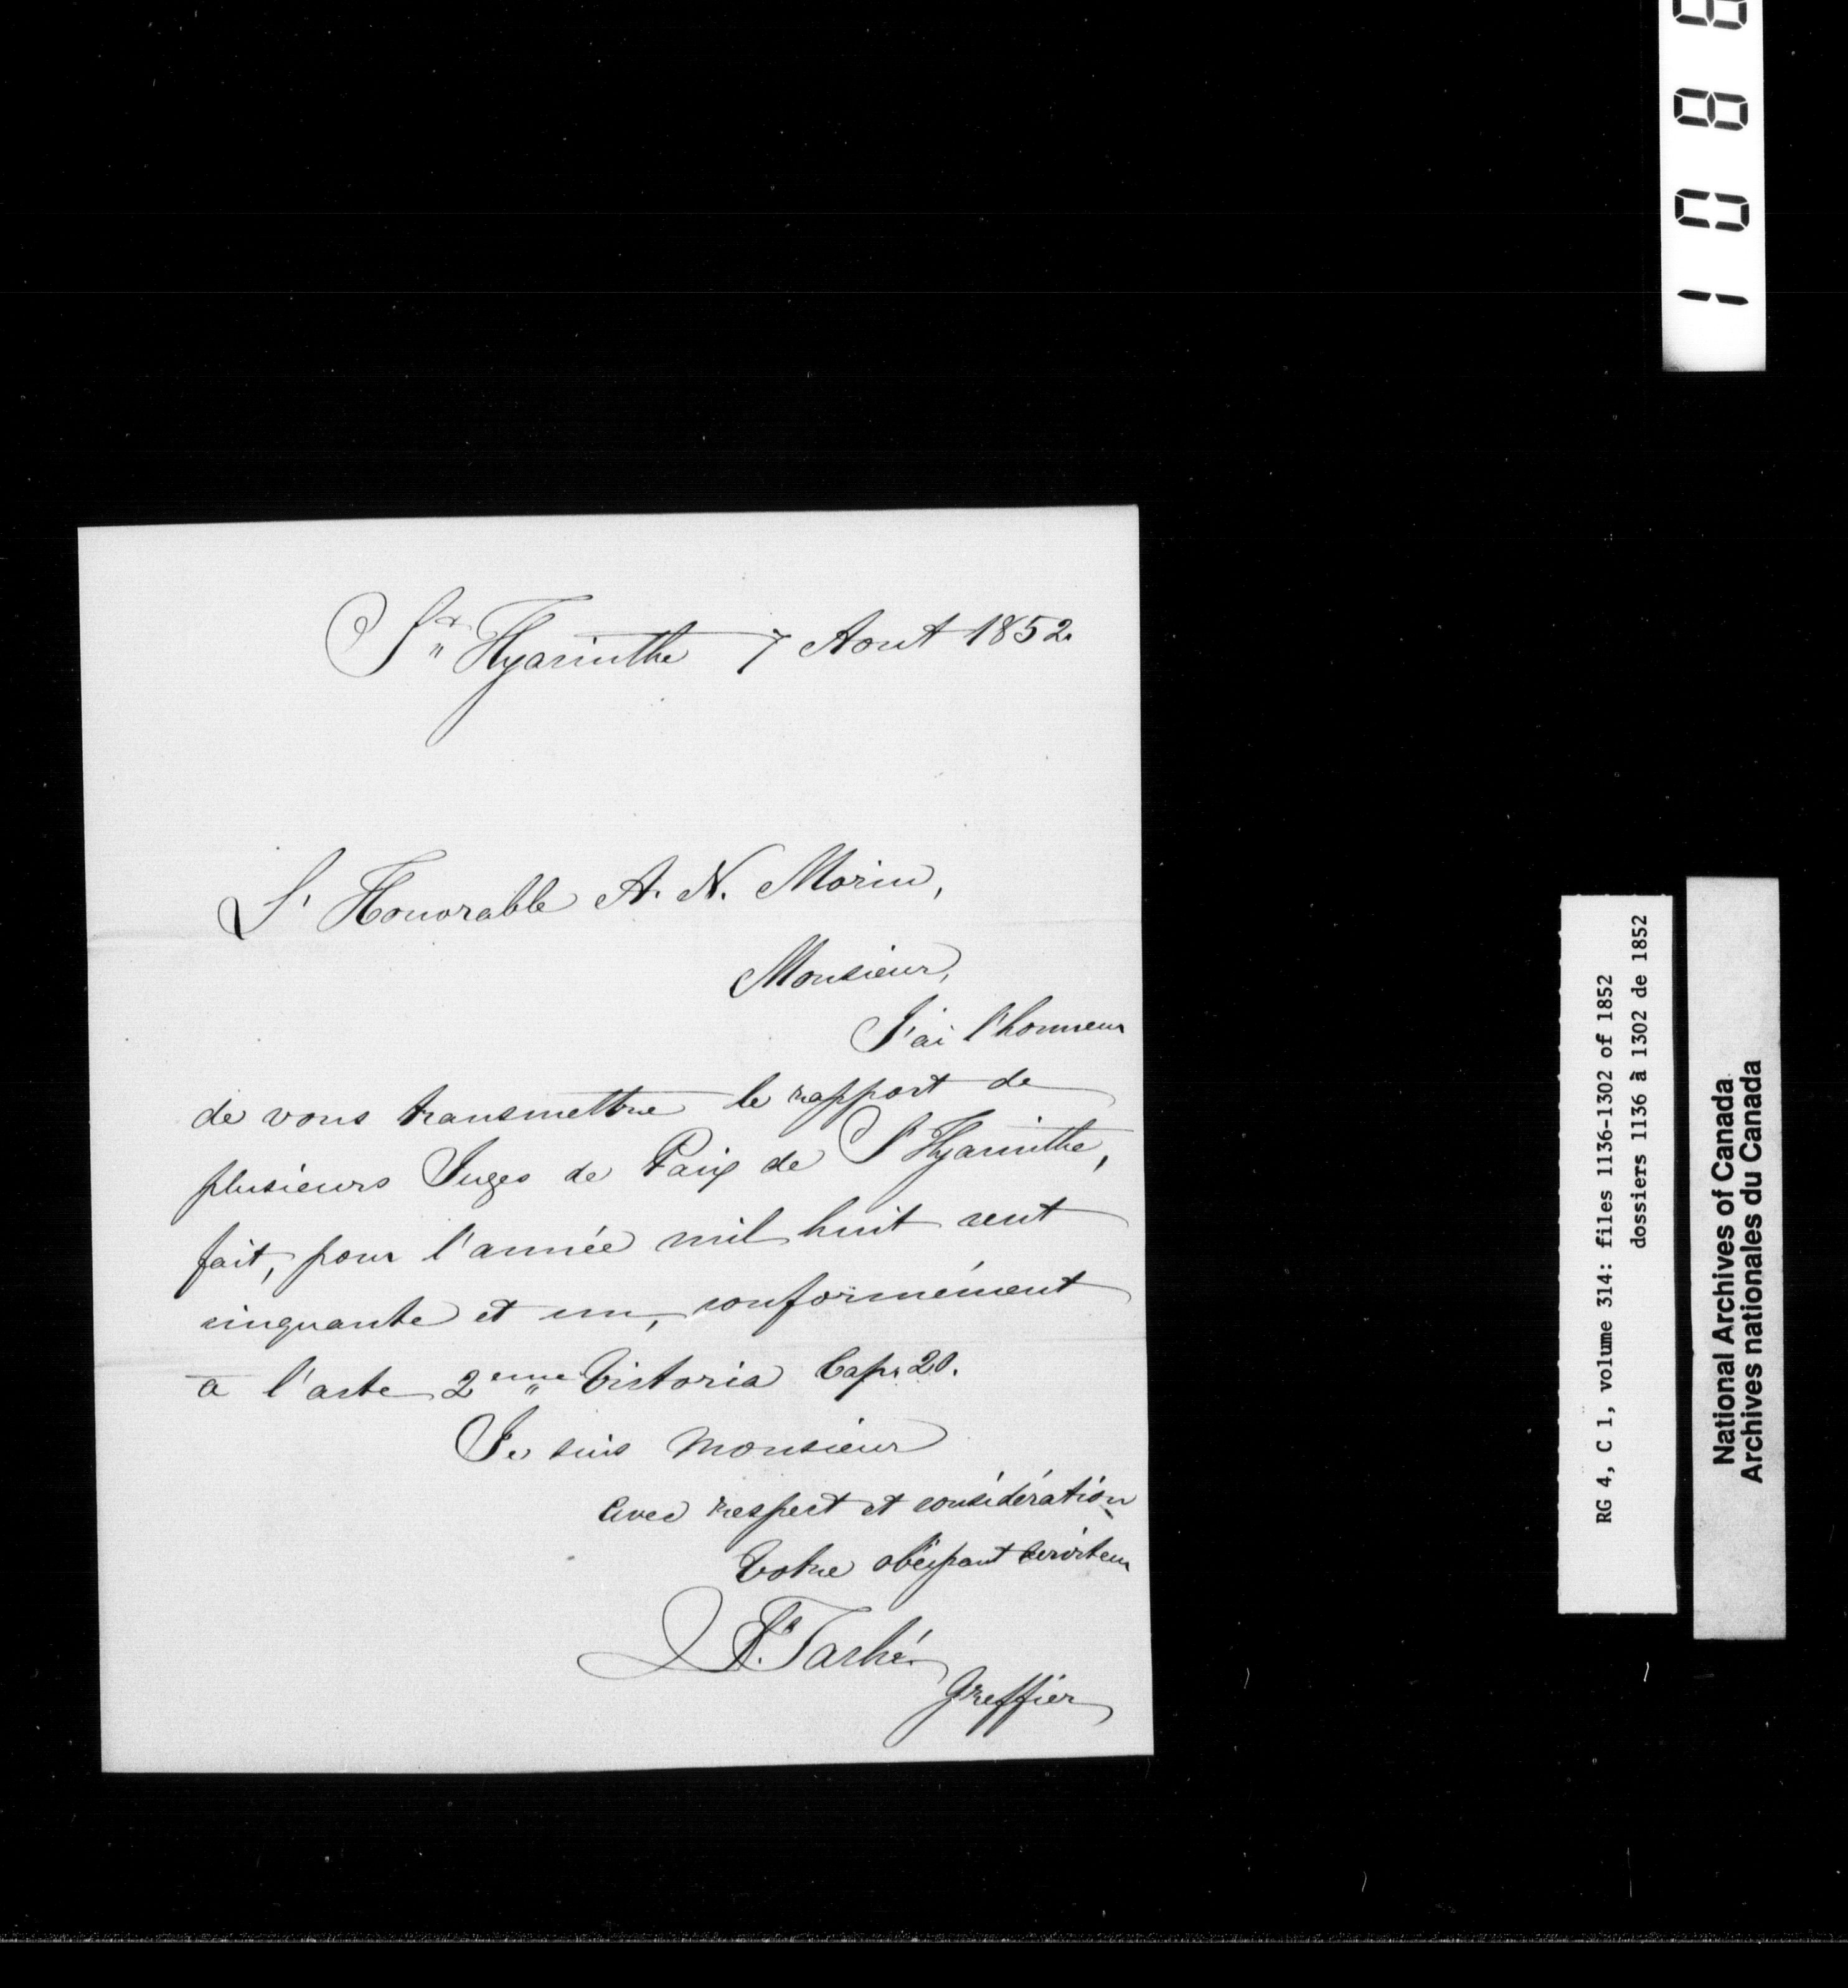 St Hyacinthe 7 Aout 1852.
L' Honorable A. N. Morin,
Monsieur,
J'ai l'honneur
de vous transmettre le rapport de
plusieurs Juges de Paix de St Hyacinthe,
fait, pour l'année mil huit cent
cinquante et un, conformément
à l'acte 2eme Victoria Cap. 20.
Je suis Monsieur
avec respect et considération
Votre obéissant serviteur
Taché
Greffier
RG 4, C 1, volume 314: files 1136-1302 of 1852
dossiers 1136 à 1302 de 1852
National Archives of Canada
Archives nationales du Canada
1 0 8